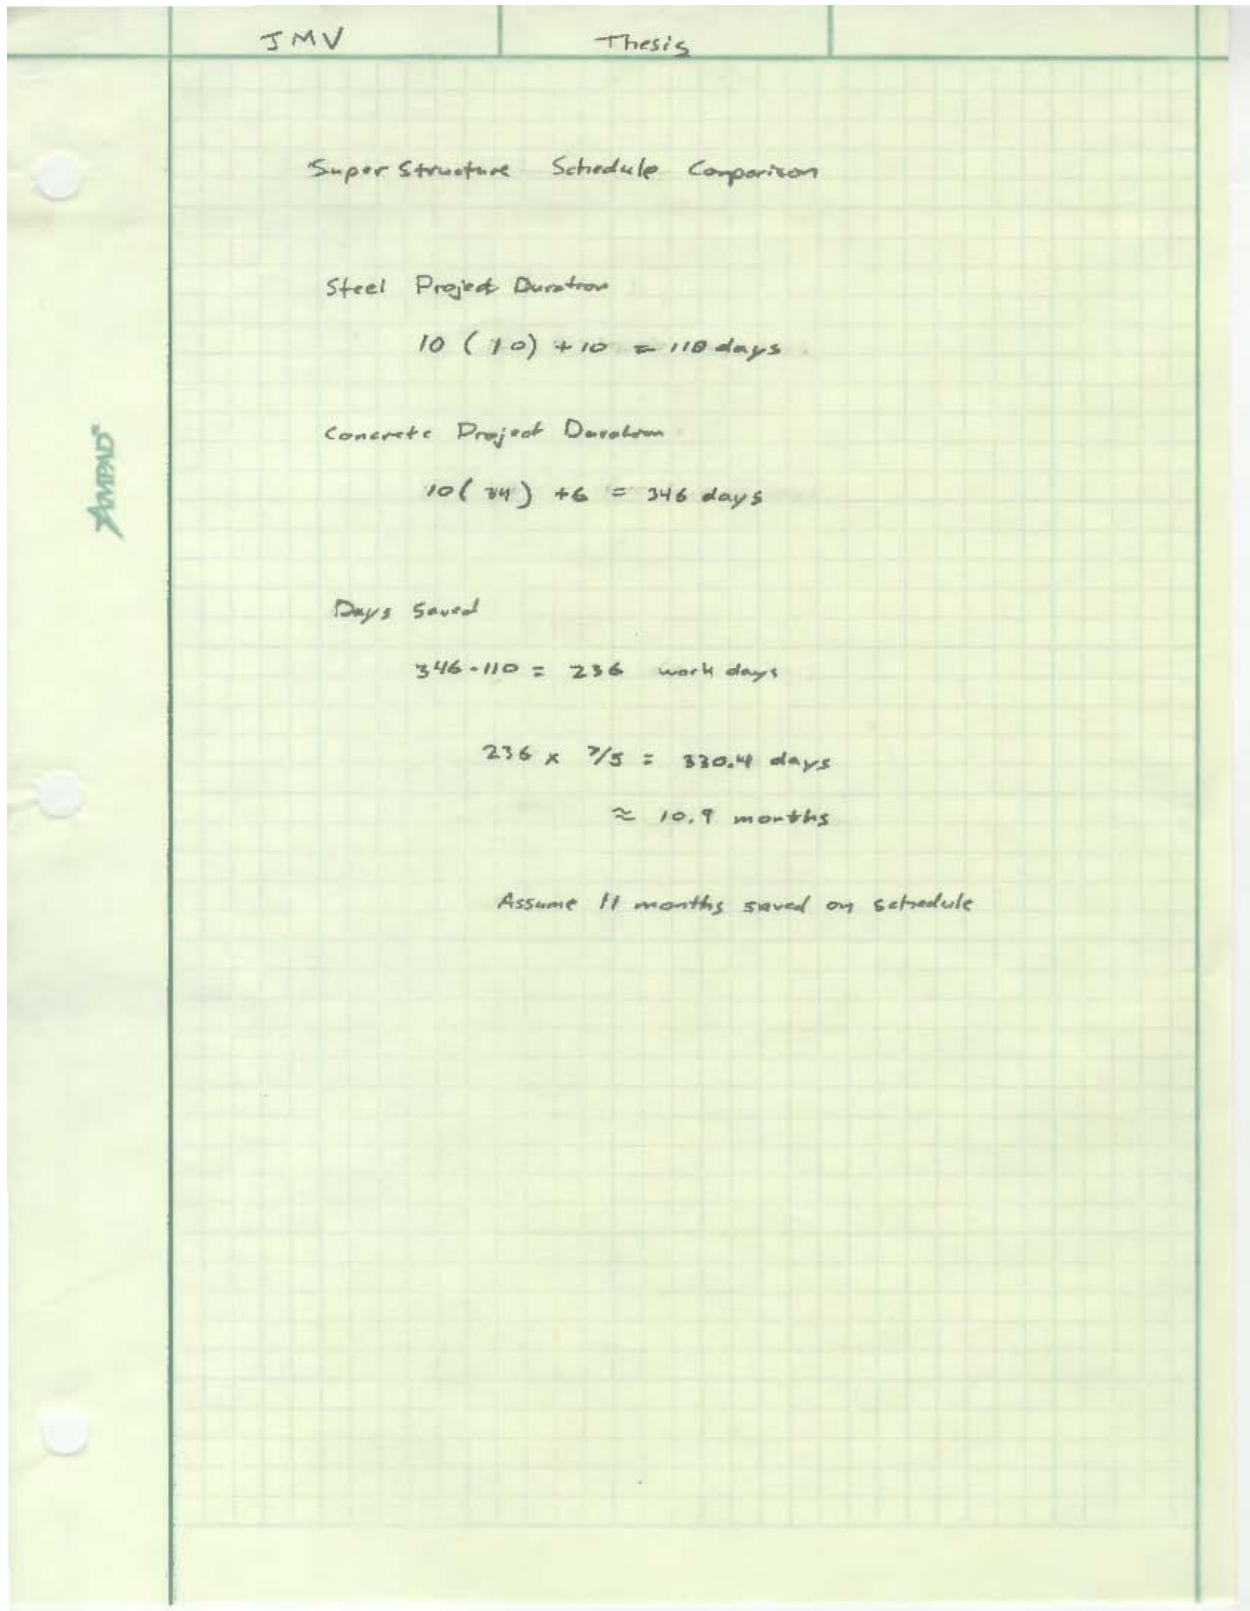 JMV Thesis
Super Structure Schedule Comparison
Steel Project Duration
10 (10) + 10 = 110 days
Concrete Project Duration
10(34) +6 = 346 days
AMPAD
Days Saved
346-110 = 236 work days
236 x 7/5 = 330.4 days
≈ 10.9 months
Assume 11 months saved on schedule